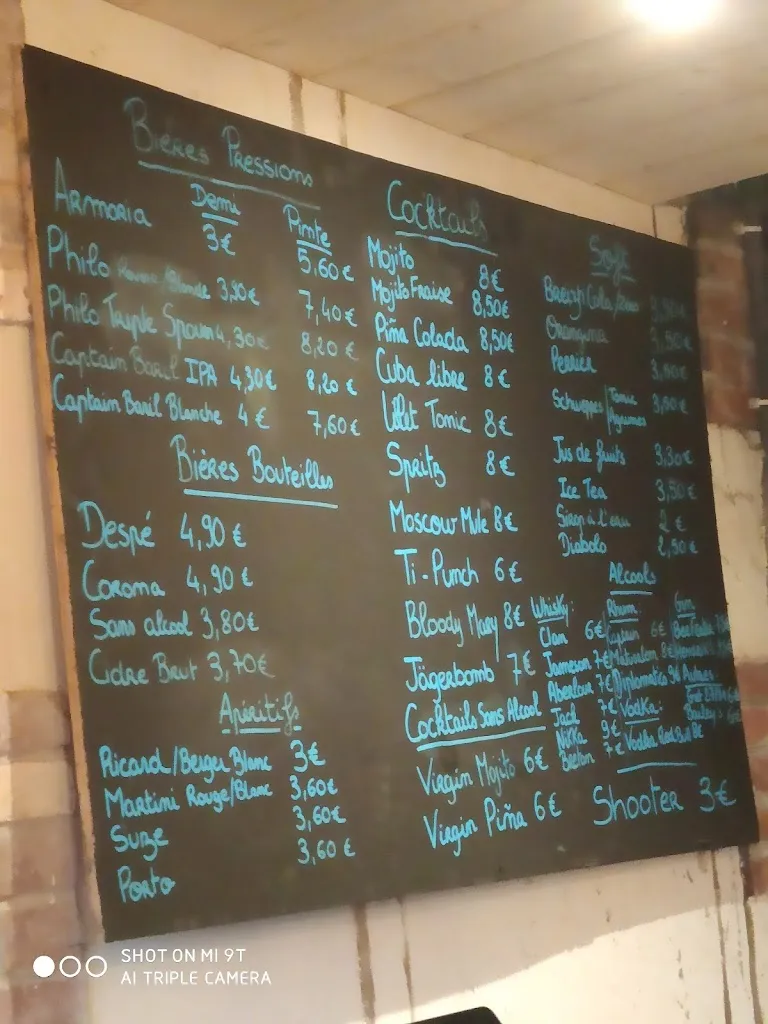 Bières Pressions
Demi Pinte
Armoria 3€ 5,60€
Philo 3,90€ 7,40€
Philo Triple Spoum 4,30€ 8,20€
Captain Baril IPA 4,30€ 8,20€
Captain Baril Blanche 4€ 7,60€
Bières Bouteilles
Despé 4,90€
Corona 4,90€
Sans alcool 3,80€
Cidre Brut 3,70€
Apéritifs
Ricard/Berger Blanc 3€
Martini Rouge/Blanc 3,60€
Suze 3,60€
Porto 3,60€
Cocktails
Mojito 8€
Mojito Fraise 8,50€
Pina Colada 8,50€
Cuba libre 8€
Lillet Tonic 8€
Spritz 8€
Moscow Mule 8€
Ti-Punch 6€
Bloody Mary 8€
Jägerbomb 7€
Cocktails Sans Alcool
Virgin Mojito 6€
Virgin Piña 6€
Soft
Breizh Cola
Orangina
Perrier
Schweppes Tonic
Agrumes
Jus de fruits 3,30€
Ice Tea 3,50€
Sirop à l'eau 2€
Diabolo 2,50€
Alcools
Whisky:
Clan 6€
Jameson 7€
Aberlour 7€
Jack 7€
Nikka 9€
Breton 7€
Rhum:
Captain 6€
Matusalem 8€
Diplomatico 9€
Vodka:
Vodka Red Bull 8€
Gin
Autres:
Shooter 3€
SHOT ON MI 9T
AI TRIPLE CAMERA